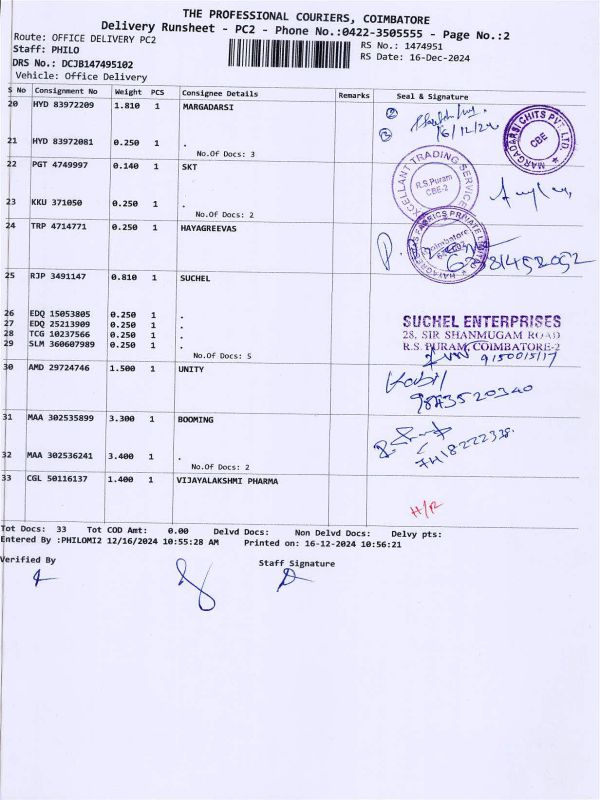 THE PROFESSIONAL COURIERS, COIMBATORE
Delivery Runsheet - PC2 - Phone No.:0422-3505555 - Page No.:2
Route: OFFICE DELIVERY PC2
RS No.: 1474951
Staff: PHILO
RS Date: 16-Dec-2024
DRS No.: DCJB147495102
Vehicle: Office Delivery
S No Consignment No Weight PCS Consignee Details Remarks Seal & Signature
20 HYD 83972209 1.810 1 MARGADARSI
16/12/24
MARGADARSI CHITS PVT. LTD. CBE
21 HYD 83972081 0.250 1 .
No.Of Docs: 3
22 PGT 4749997 0.140 1 SKT
EXCELLANT TRADING SERVICE
R.S.Puram
CBE-2
23 KKU 371050 0.250 1 .
No.Of Docs: 2
24 TRP 4714771 0.250 1 HAYAGREEVAS
FABRICS PRIVATE LIMITED
Coimbatore
25 RJP 3491147 0.810 1 SUCHEL
26 EDQ 15053805 0.250 1 .
27 EDQ 25213909 0.250 1 .
28 TCG 10237566 0.250 1 .
29 SLM 360607989 0.250 1 .
No.Of Docs: 5
SUCHEL ENTERPRISES
28, SIR SHANMUGAM ROAD
R.S. PURAM, COIMBATORE-2
30 AMD 29724746 1.500 1 UNITY
9843520340
31 MAA 302535899 3.300 1 BOOMING
32 MAA 302536241 3.400 1 .
No.Of Docs: 2
33 CGL 50116137 1.400 1 VIJAYALAKSHMI PHARMA
H/R
Tot Docs: 33 Tot COD Amt: 0.00 Delvd Docs: Non Delvd Docs: Delvy pts:
Entered By :PHILOMI2 12/16/2024 10:55:28 AM Printed on: 16-12-2024 10:56:21
Verified By
Staff Signature